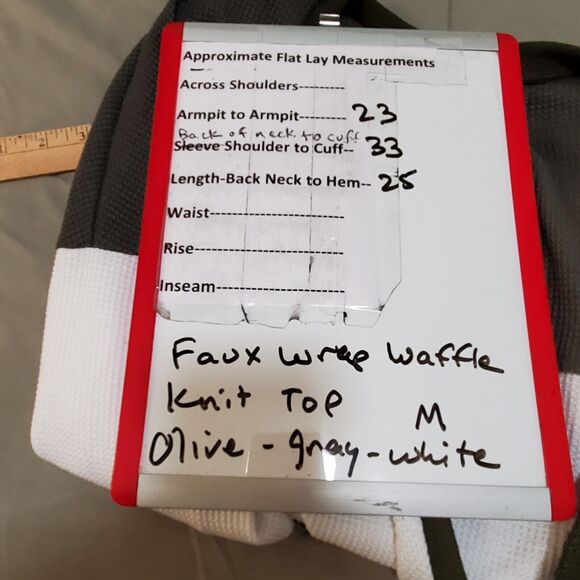 Approximate Flat Lay Measurements
Across Shoulders---------
Armpit to Armpit--------- 23
Back of neck to cuff
Sleeve Shoulder to Cuff-- 33
Length-Back Neck to Hem-- 25
Waist--------------------------
Rise-----------------------------
Inseam-------------------------
Faux wrap waffle
Knit Top
M
Olive - gray - white